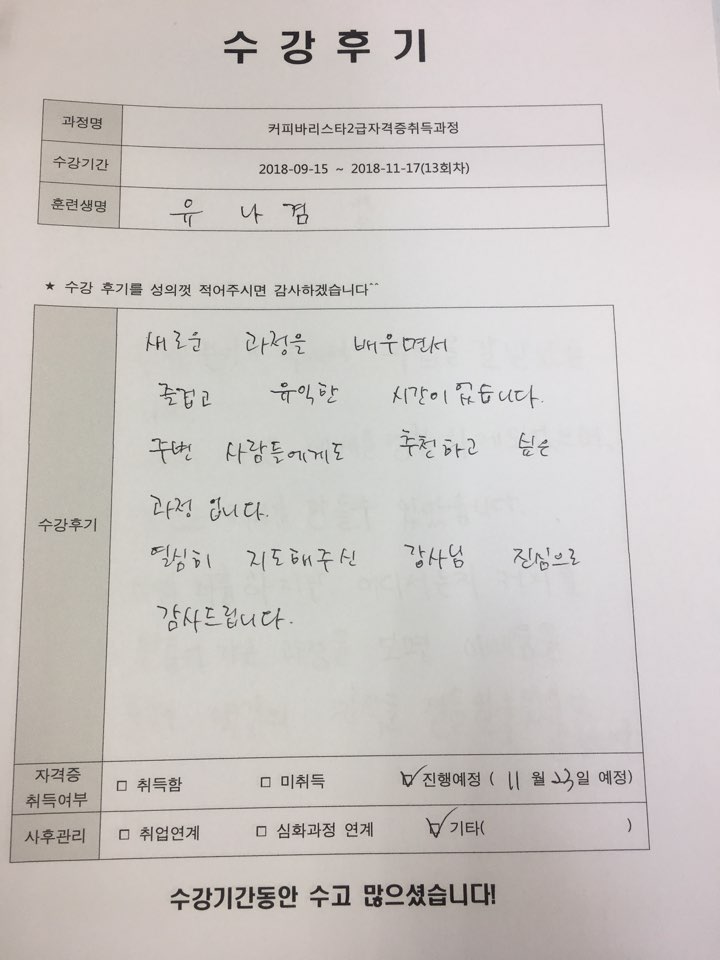 수강후기
과정명 커피바리스타2급자격증취득과정
수강기간 2018-09-15 ~ 2018-11-17(13회차)
훈련생명 유 나 겸
★ 수강 후기를 성의껏 적어주시면 감사하겠습니다^^
수강후기
새로운 과정을 배우면서
즐겁고 유익한 시간이 없습니다.
주변 사람들에게도 추천하고 싶은
과정 입니다.
열심히 지도해주신 강사님 진심으로
감사드립니다.
자격증 취득여부 □ 취득함 □ 미취득 ☑ 진행예정 ( 11 월 23일 예정)
사후관리 □ 취업연계 □ 심화과정 연계 ☑ 기타( )
수강기간동안 수고 많으셨습니다!